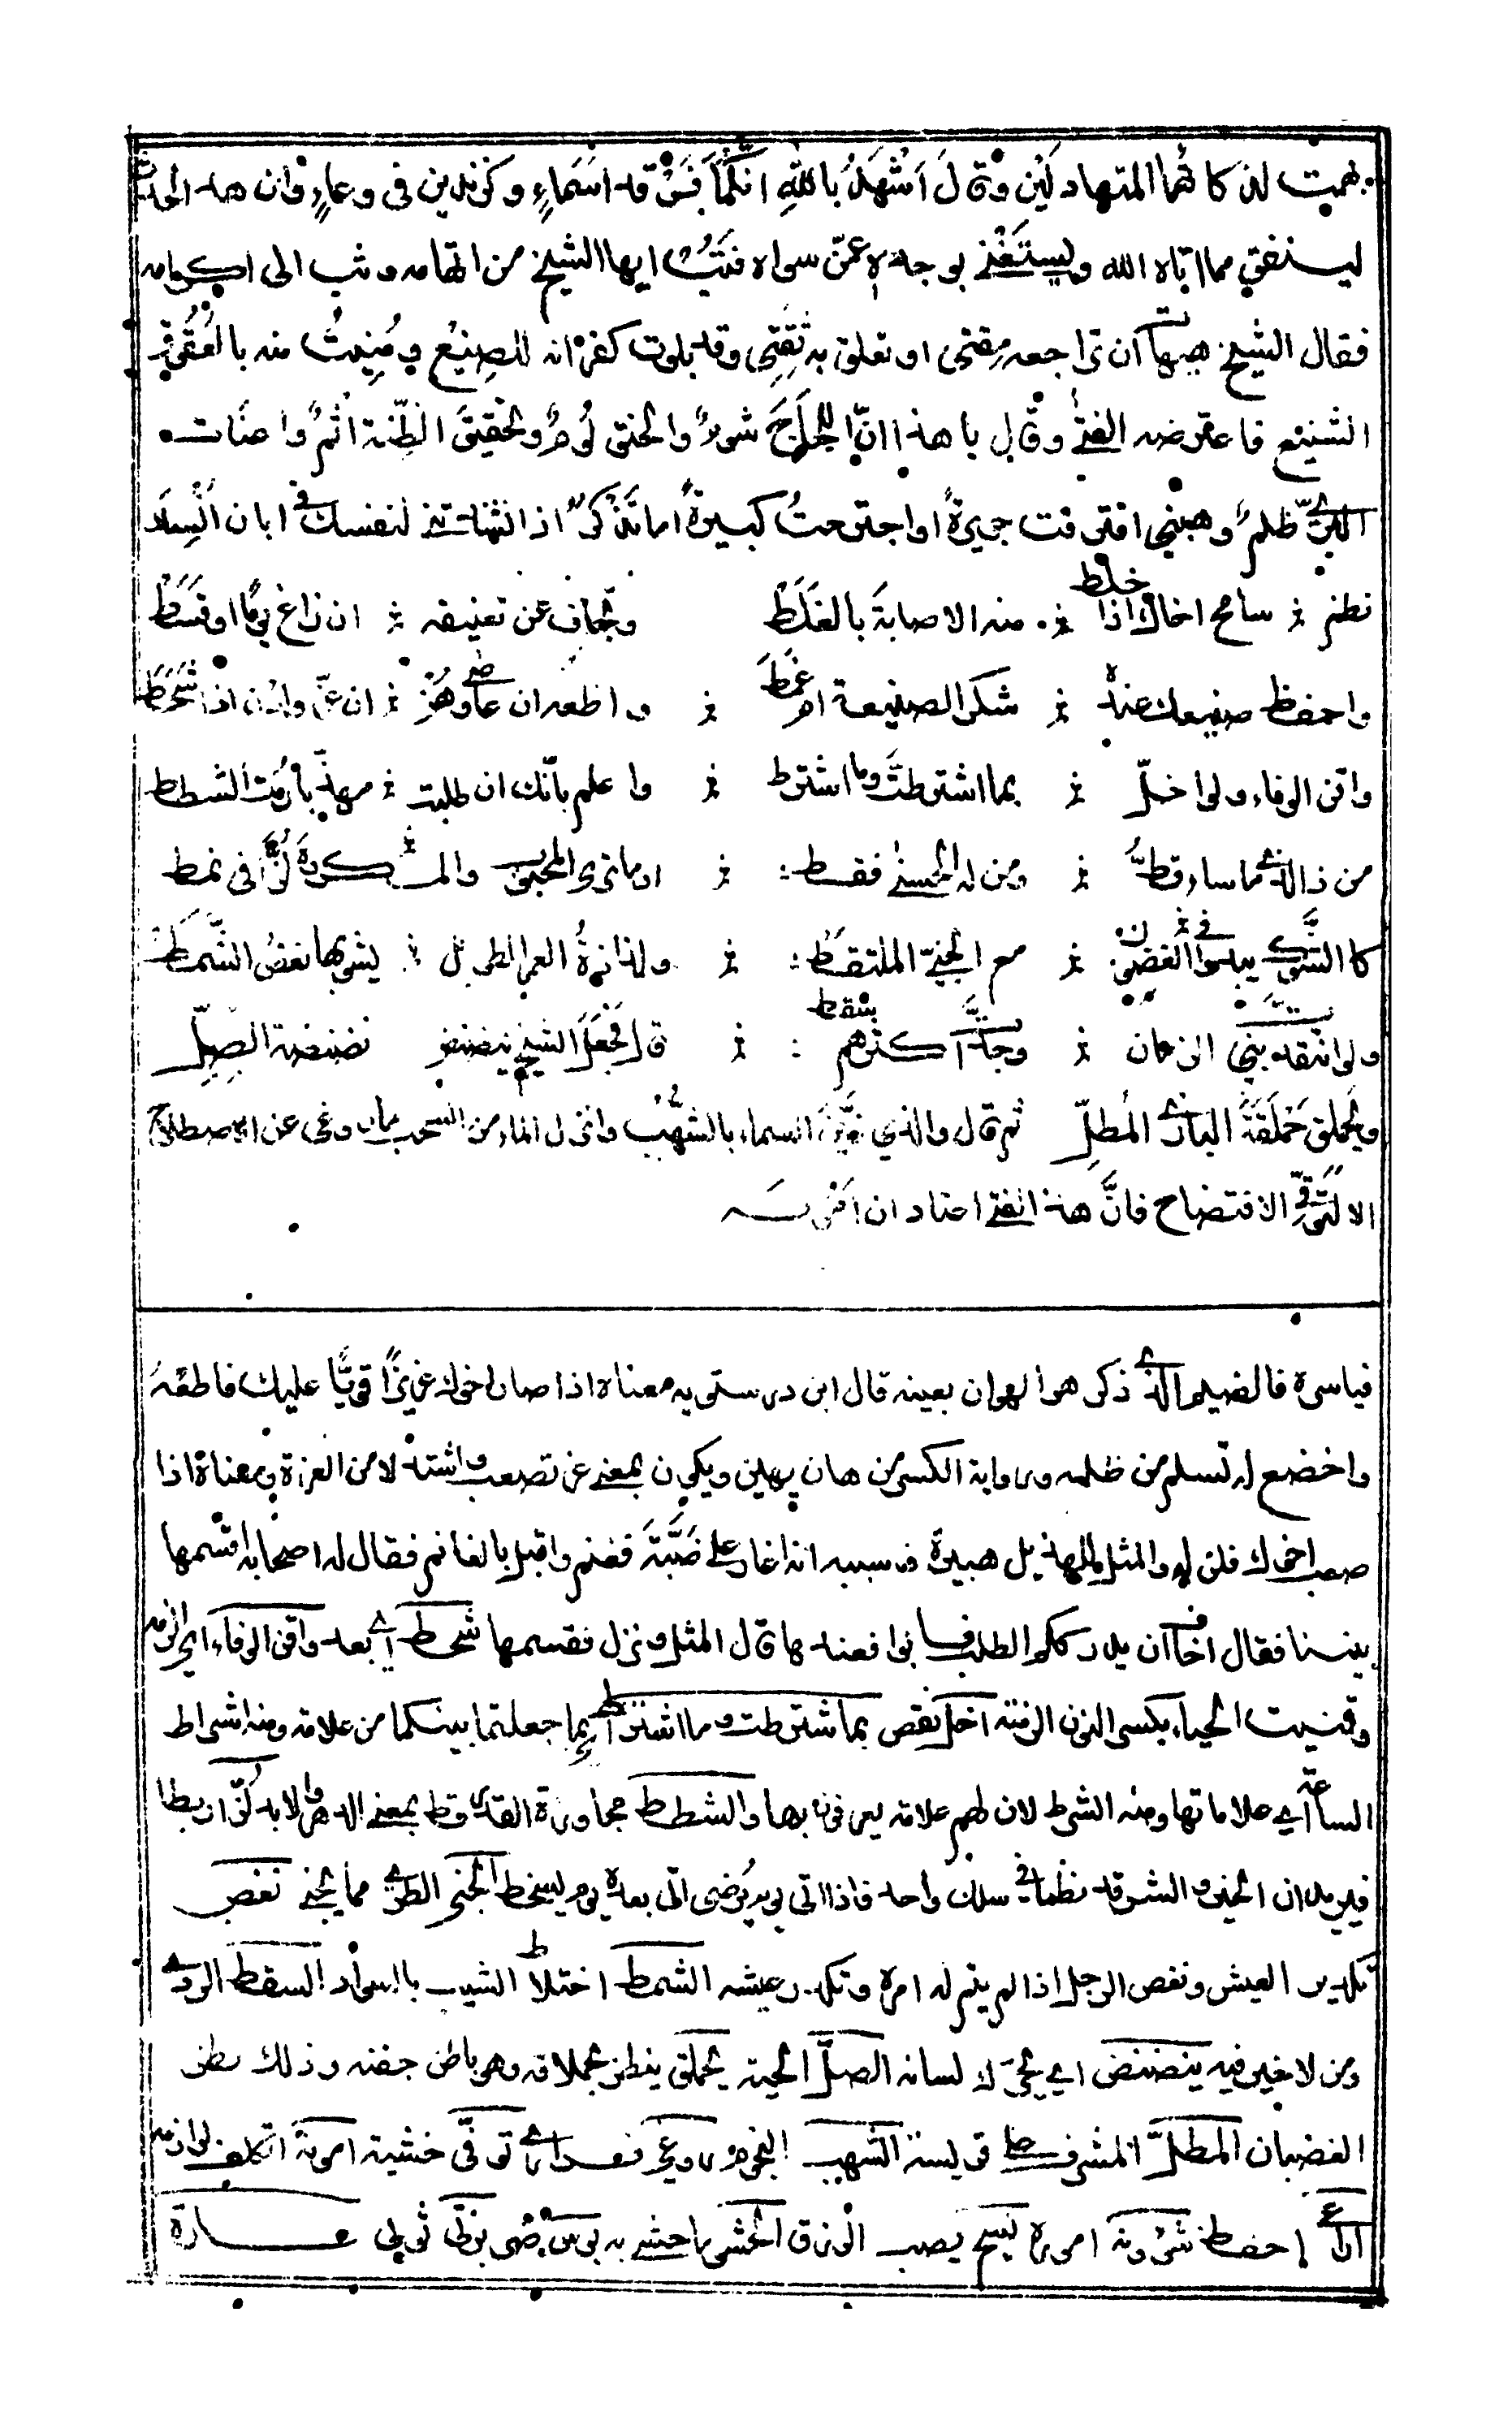 بهت لذكائهما المتهادلين وقال اشهد بالله انكما فرقدا سماء وكزندين في وعاء وان هذا الحدث
لينفق مما اتاه الله ويستغنى بوجده عمن سواه فتب ايها الشيخ من اتهامه وثب الى اكرامه
فقال الشيخ هيهات ان تراجعه مقتى او تعلق به ثقتى وقد بلوت كفرانه للصنيع ومنيت منه بالعقوق
الشنيع فاعترضه الفتى وقال يا هذا ان اللجاج شوم والحنق لوم وتحقيق الظنة اثم واعنات
البرى ظلم وهبنى اقترفت جريرة او اجترحت كبيرة اما تذكر اذ انشدتنى لنفسك فى ابان انسك
سامح اخاك اذا خلط منه الاصابة بالغلط وتجاف عن تعنيفه ان زاغ يوما او قسط
واحفظ صنيعك عنده شكر الصنيعة ام غمط واطعه ان عاصى وهن ان عز وادن اذا شحط
واقن الوفاء ولو اخل بما اشترطت وما اشترط واعلم بانك ان طلبت مهذبا رمت الشطط
من ذا الذى ما ساء قط ومن له الحسنى فقط او ما ترى المحبوب والمكروه لزا فى نمط
كالشوك يبدو فى الغصون مع الجنى الملتقط ولذاذة العمر الطويل يشوبها نغص الشمط
ولو انتقدت بنى الزمان وجدت اكثرهم سقط قال فجعل الشيخ ينضنض نضنضة الصل
ويحملق حملقة البازى المطل ثم قال والذى زين السماء بالشهب وانزل الماء من السحب ما روغى عن الاصطلاح
الا لتوقى الافتضاح فان هذا الفتى اعتاد ان امونه
فياسره فالضيم الذى ذكر هو الهوان بعينه قال ابن درستويه معناه اذا صار اخوك عزيزا قويا عليك فاطعه
واخضع له تسلم من ظلمه ورواية الكسر من هان يهين ويكون بمعنى عز تصعب واشتد لا من العزة ومعناه اذا
صعب اخوك فلن له والمثل للهذيل بن هبيرة وسببه انه اغار على ضبة فغنم واقبل بالغانم فقال له اصحابه اقسمها
بيننا فقال اخاف ان يدرككم الطلب فابوا فعندها قال المثل ونزل فقسمها شحط اى بعد واقن الوفاء اى الزمه
وقنيت الحياء بكسر النون الزمته اخل نقص بما اشترطت وما اشترط اى بما جعلتما بينكما من علامة ومنه اشراط
الساعة اى علاماتها ومنه الشرط لان لهم علامة يعرفون بها والشطط مجاورة القدر وقط بمعنى الدهر لزا ربطا
فيريد ان الخير والشر قد نظما فى سلك واحد فاذا اتى يوم يرضى اتى بعده يوم يسخط الجنى الطرى مما يجنى نغص
تكدير العيش ونغص الرجل اذا لم يتم له امره وتكدر عيشه الشمط اختلاط الشيب بالسواد السقط الردى
ومن لا خير فيه ينضنض اى يحرك لسانه الصل الحية يحملق ينظر بحملاقه وهو باطن جفنه وذلك نظر
الغضبان المطل المشرف على فريسته الشهب النجوم روغى فرارى توقى خشية امونه اتكلف لوازمه
اراعى احفظ شؤونه اموره يسح يصب الرزق